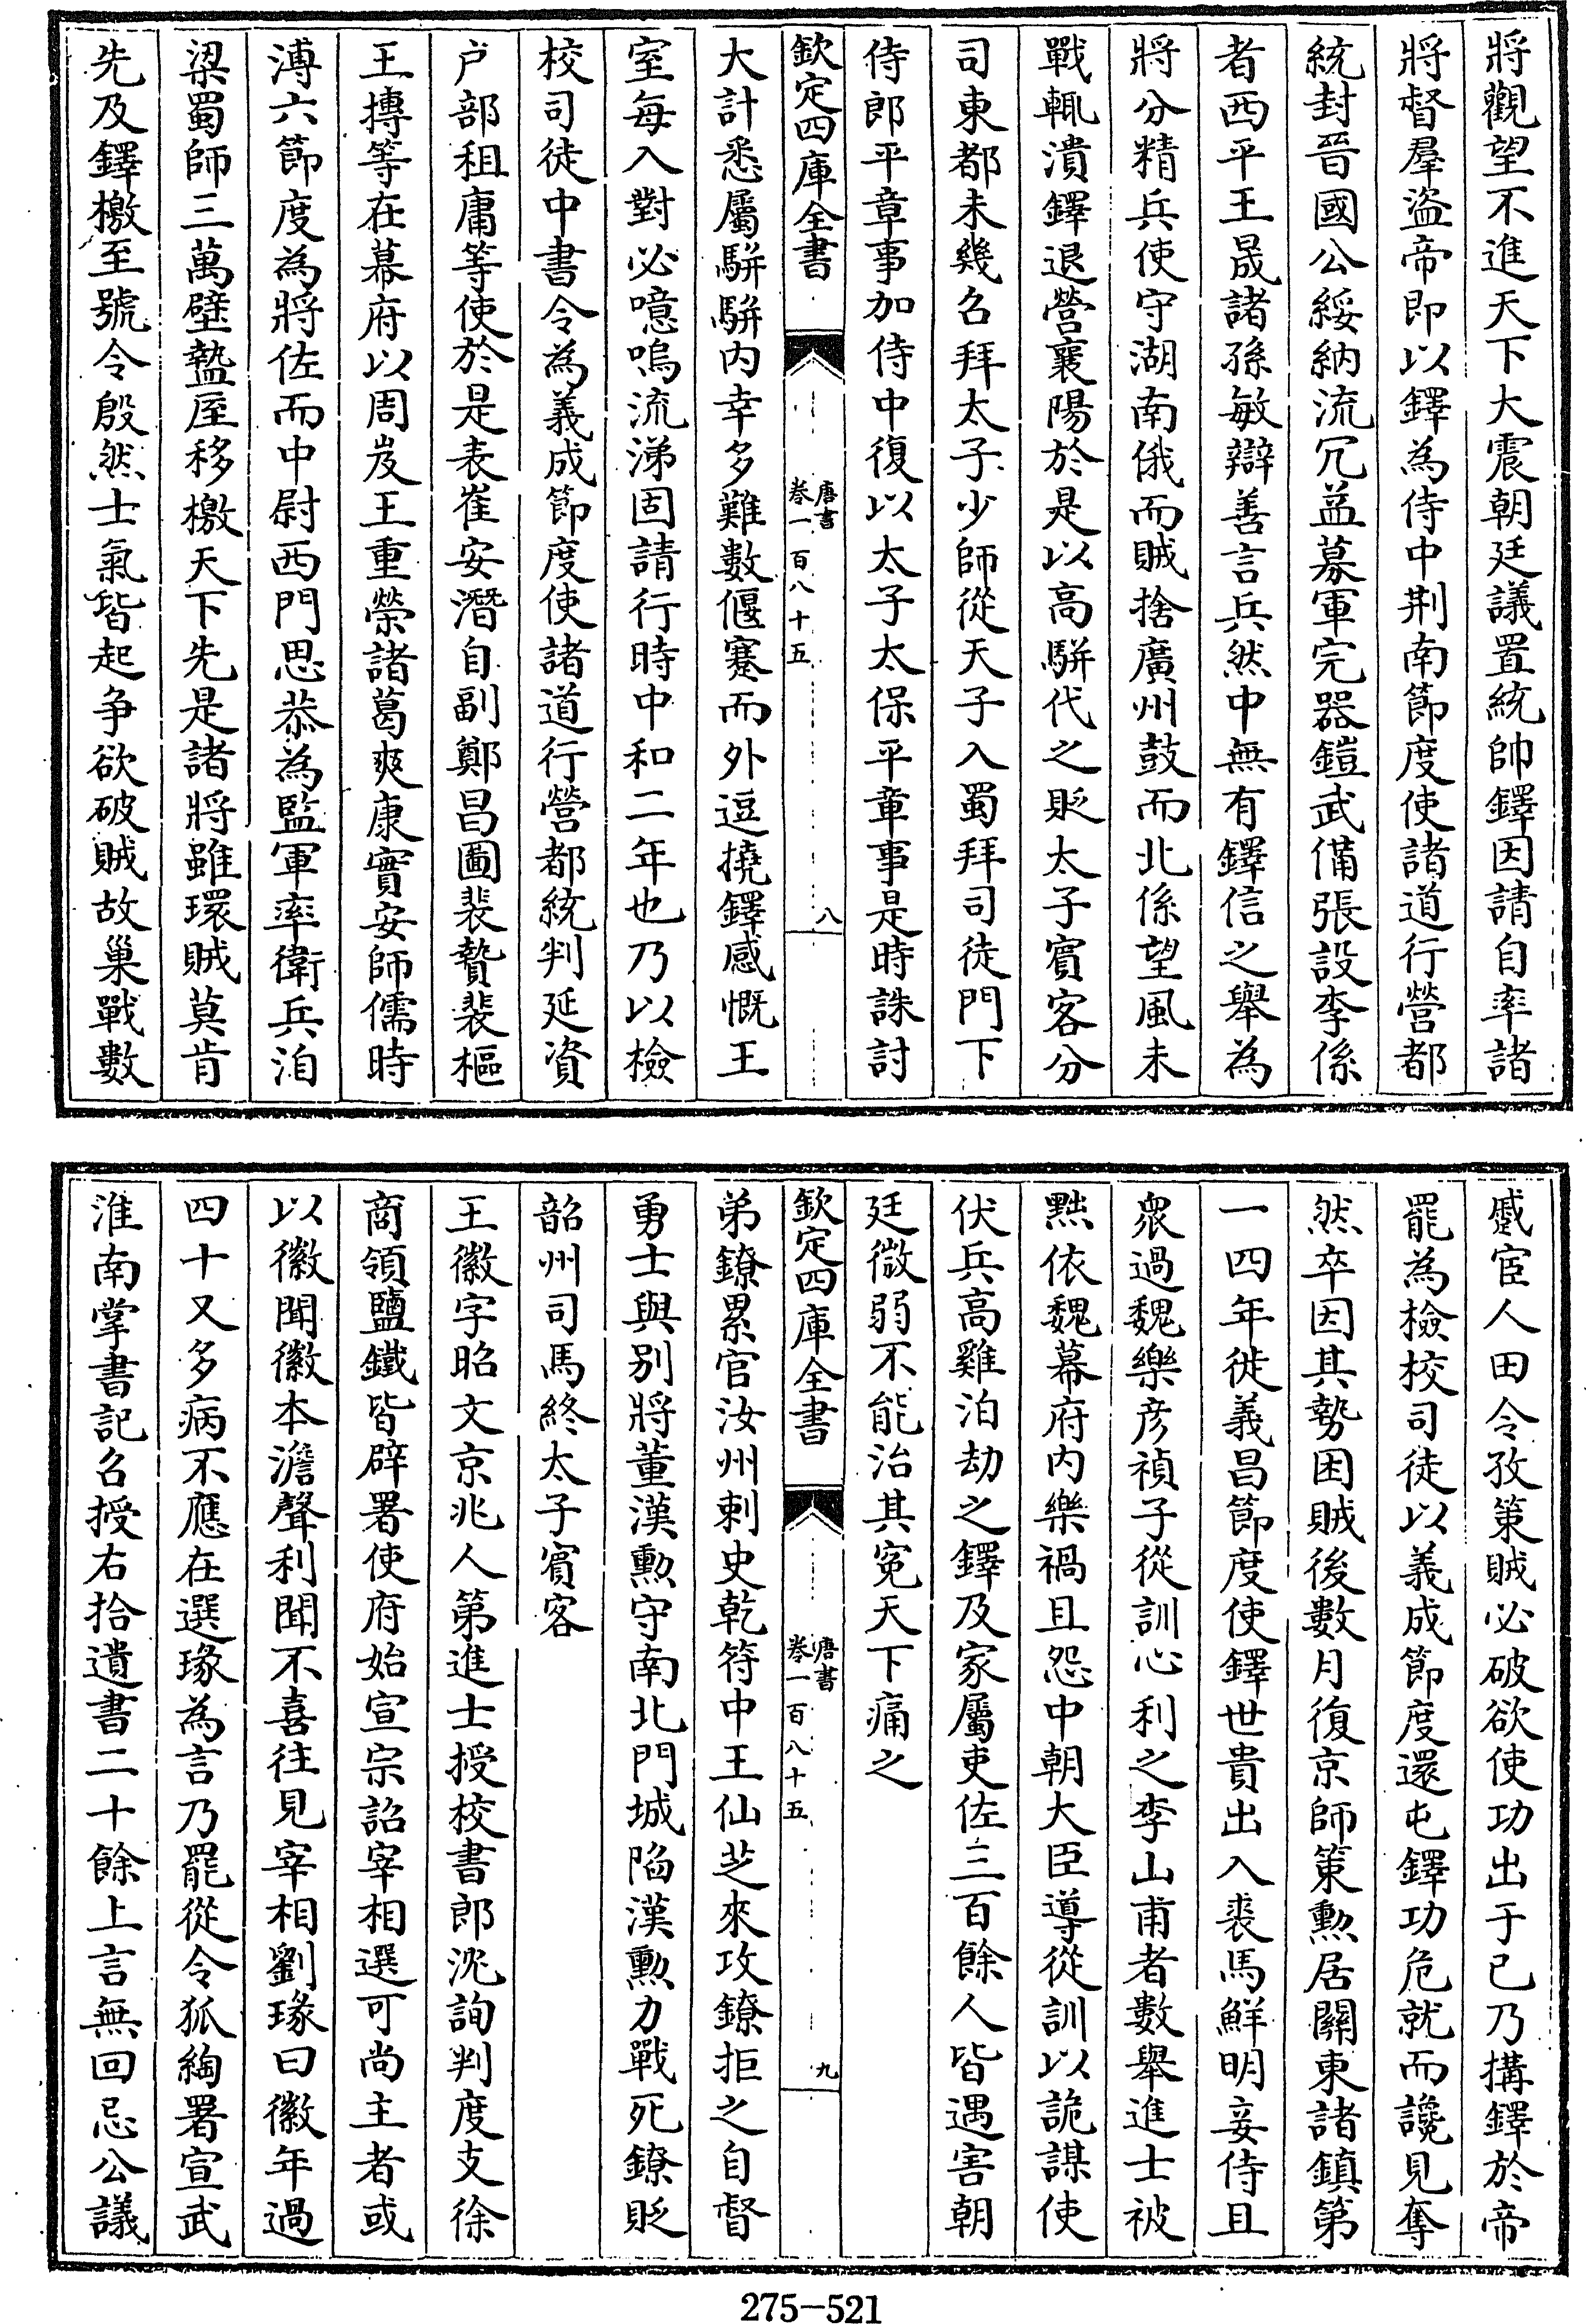 將觀望不進天下大震朝廷議置統帥鐸因請自率諸
將督羣盜帝即以鐸為侍中荆南節度使諸道行營都
統封晉國公綏納流冗益募軍完器鎧武備張設李係
者西平王晟諸孫敏辯善言兵然中無有鐸信之舉為
將分精兵使守湖南俄而賊捨廣州鼓而北係望風未
戰輒潰鐸退營襄陽於是以高駢代之貶太子賓客分
司東都未幾召拜太子少師從天子入蜀拜司徒門下
侍郎平章事加侍中復以太子太保平章事是時誅討
欽定四庫全書
唐書
卷一百八十五
八
大計悉屬駢駢内幸多難數偃蹇而外逗撓鐸感慨王
室每入對必噫嗚流涕固請行時中和二年也乃以檢
校司徒中書令為義成節度使諸道行營都統判延資
户部租庸等使於是表崔安潛自副鄭昌圖裴贄裴樞
王摶等在幕府以周岌王重榮諸葛爽康實安師儒時
溥六節度為將佐而中尉西門思恭為監軍率衛兵洎
梁蜀師三萬壁盩厔移檄天下先是諸將雖環賊莫肯
先及鐸檄至號令殷然士氣皆起争欲破賊故巢戰數
蹙宦人田令孜策賊必破欲使功出于已乃搆鐸於帝
罷為檢校司徒以義成節度還屯鐸功危就而讒見奪
然卒因其勢困賊後數月復京師策勲居關東諸鎮第
一四年徙義昌節度使鐸世貴出入裘馬鮮明妾侍且
衆過魏樂彦禎子從訓心利之李山甫者數舉進士被
黜依魏幕府内樂禍且怨中朝大臣導從訓以詭謀使
伏兵高雞泊劫之鐸及家屬吏佐三百餘人皆遇害朝
廷微弱不能治其寃天下痛之
欽定四庫全書
唐書
卷一百八十五
九
弟鐐累官汝州刺史乾符中王仙芝來攻鐐拒之自督
勇士與别將董漢勲守南北門城陷漢勲力戰死鐐貶
韶州司馬終太子賓客
王徽字昭文京兆人第進士授校書郎沈詢判度支徐
商領鹽鐵皆辟署使府始宣宗詔宰相選可尚主者或
以徽聞徽本澹聲利聞不喜往見宰相劉瑑曰徽年過
四十又多病不應在選瑑為言乃罷從令狐綯署宣武
淮南掌書記召授右拾遺書二十餘上言無回忌公議
275-521